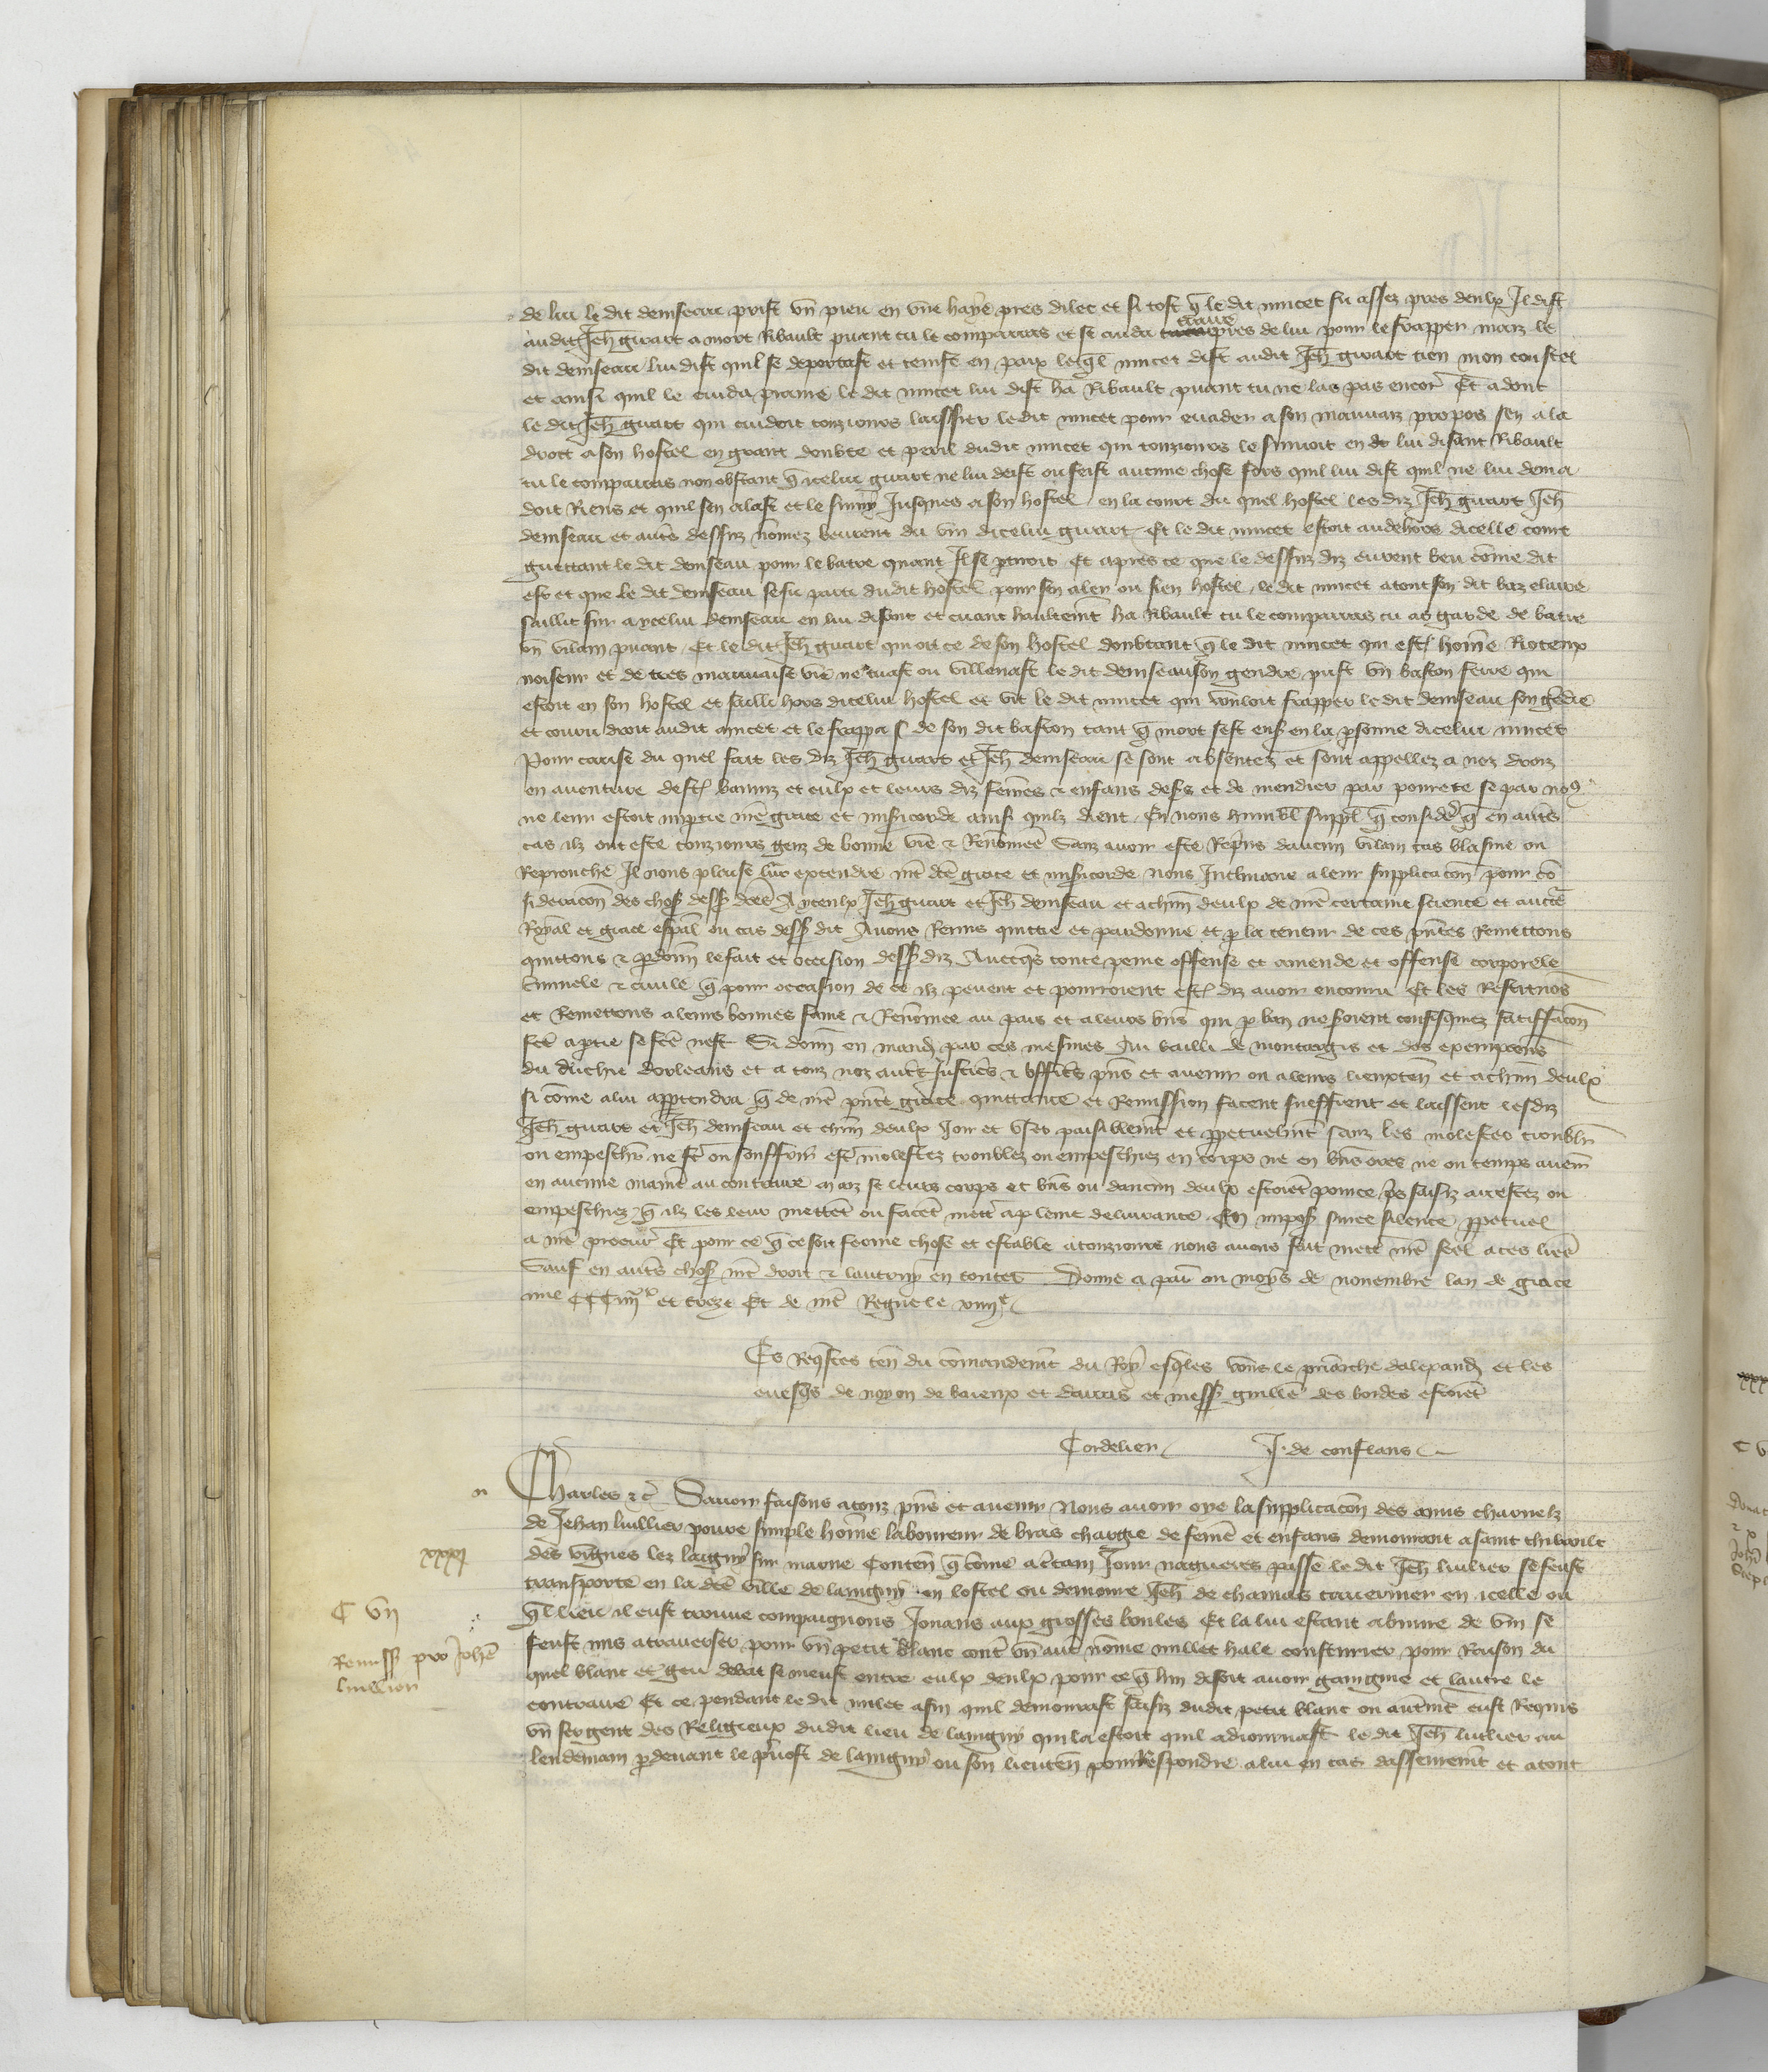 de lui le dit demseau prist vn pieu en vne haye pres dilec et si tost q̃ le dit nincet fu assez pres deulx Il dist
audit Jeh̃ guart a mort Ribault puant tu le comparras et se cuida traire pres de lui pour le frapper maiz le
dit demseau lui dist quil se deportast et tenist en paix leq̃l nincet dist audit Jeh̃ guart tien mon coustel
et ainsi quil le cuida prame le dit nincet lui dist ha Ribault puant tu ne las pas encor̃ Et adont
le dit Jeh̃ guart qui cuidoit touziours laissier le dit nincet pour euader a son mauuaiz propos sen ala
droit a son hostel en grant doubte et peril dudit nincet qui touziours le suiuoit en lui disant Ribault
tu le comparras non obstant q̃ icelui guart ne lui deist ou feist aucune chose fors quil lui dist quil ne lui dema
doit Riens et quil sen alast et le suiuy Jusques a son hostel / en la court du quel hostel les diz Jeh̃ guart Jeh̃
demseau et aut̃s dessuz nõmez beurent du vin dicelui guart Et le dit nincet estoit audehors dicelle court
guettant le dit demseau pour le batre quant Il se p̱tiroit Et apres ce que le dessuz diz eurent beu cõme dit
est et que le dit demseau se fu parti dudit hostel pour sen aler ou sien hostel / le dit nincet atout son dit baz elaire
saillit sur aycelui demseau en lui disant et criant haultem̃t ha Ribault tu le comparras tu as garde de batre
vn vilain puant / Et le dit Jeh̃ guart qui oit ce de son hostel doubtant q̃ le dit nincet qui est hom̃e Rioteux
noiseur et de tres mauuaise vie ne tuast ou villenast le dit demseau son gendre prist vn baston ferre qui
estoit en son hostel et sailli hors dicelui hostel et vit le dit nincet qui vouloit frapper le dit demseau son gẽdre
et couru droit audit nincet et le frappa de son dit baston tant q̃ mort sest ens̃ en la ꝑsonne dicelui nincet
Pour cause du quel fait les diz Jeh̃ guart et Jeh̃ demseau se sont absentez et sont appellez a noz droiz
en auenture dest̃ banniz et eulx et leurs diz fem̃es & enfans dess̃ et de mendier par pourete se par no9
ne leur estoit imp̱tie nr̃e grace et mis̃icorde ainsi quilz dient / En nous humbl̃ suppl̃ q̃ consider̃ q̃ en aut̃s
cas ilz ont este touziours genz de bonne vie & Renom̃ee Sanz auoir este Rep̃ns daucun vilain cas blasme ou
Reprouche Il nous plaise leur extendre nr̃e d̃ce grace et mis̃icorde Nous Inclinans a leur supplicac̃on pour cõ
sideracõn des chos̃ dess̃ d̃ces Aiceulx Jeh̃ guart et Jeh̃ demseau et achũn deulx de nr̃e certaine science et auctẽ
Royal et grace esp̃al ou cas dess̃ dit Auons Remis quittie et pardonne et ꝑ la teneur de ces p̃ntes Remettons
quittons & ꝑdonñ le fait et occasion dess̃ diz Auecq̃s toute peine offense et amende et offense corporele
criminele & ciuile q̃ pour occasion de ce ilz peuent et pourroient est̃ diz auoir encouru Et les Restituõs
et Remettons a leurs bonnes fame & Renom̃ee au pais et a leurs biñs qui ꝑ ban ne s̃oient confisquez satiffacõn
fc̃e a p̱tie se fc̃e nest Si donñ en mand̃ par ces mesmes Au bailli de montargis et des exempcõns
du duchie dorleans et a touz noz aut̃s Justic̃s & officiers p̃ns et auenir ou a leurs lieuxten̄ et achũn deulx
si cõme a lui app̱tendra q̃ de nr̃e p̃nte grace quittance et Remission facent sueffrent et laissent lesdiz
Jeh̃ guart et Jeh̃ demseau et chũn deulx Joir et vser paisiblem̃t et ꝑpetuelm̃t sanz les molester troubl̃r
ou empesch̃r ne s̃ ou souffrir est̃ molestez troublez ou empeschiez en corps ne en biñs ores ne ou temps aueñ
en aucune maniẽ au contraire maiz se leurs corps et biñs ou daucun deulx estoiẽt pource p̃s saisiz arrestez ou
empeschiez q̃ ilz les leur mettẽt ou facẽt mett̃ a pleine deliurance / En impos̃ s̃ ince silence ꝑpetuel
a nr̃e procur̃ Et pour ce q̃ ce soit ferme chose et estable a touziours nous auons fait mett̃ nr̃e seel a ces lr̃es
Sauf en aut̃s chos̃ nr̃e droit & lautruy en toutes Donne a par̃ ou moys de nouembre lan de grace
mil CCCiiijxx et treze Et de nr̃e Regne le xiiije
Es Req̃stes ten̄ du cõmandem̃t du Roy esq̃les vous le pr̃iarche dalexand̃ et les
euesq̃s de noyon de baieux et darras et mess̃ guillẽ des bordes estoiẽt
Cordelier J. de conflans
Charles &c̃ Sauoir faisons a touz p̃ns et auenir Nous auoir oye la supplicacõn des amis charnelz
de Jehan luillier poure simple hom̃e laboureur de bras chargie de fem̃e et enfans demourant a saint thibault
des vignes lez laigny sur marne Conteñ q̃ cõme a c̃tain Jour nagueres passe le dit Jeh̃ luilier se feust
transporte en la d̃ce ville de laigny en lostel ou demoure Jeh̃ de chamais tauernier en icelle ou
q̃l lieu il eust trouue compaignons Jouans aux grosses boules Et la lui estant abuure de vin se
feust mis a trauerser pour vn petit blanc cont̃ vn aut̃ nõme millet hale cousturier pour Raison du
quel blanc et geu debat se meust entre eulx deulx pour ce q̃ lun disoit auoir gaingnie et lautre le
contraire Et ce pendant le dit milet afin quil demourast saisiz dudit petit blanc ou aut̃m̃t eust Requis
vn sergent des Religieux dudit lieu de laingny qui la estoit quil adiournast le dit Jeh̃ luilier au
lendemain ꝑ deuant le p̃uost de laingny ou son lieuteñ pour Respondre a lui en cas dasseurem̃t et atout
xxxxj
C vn
Remiss̃ pro Johẽ
luillier